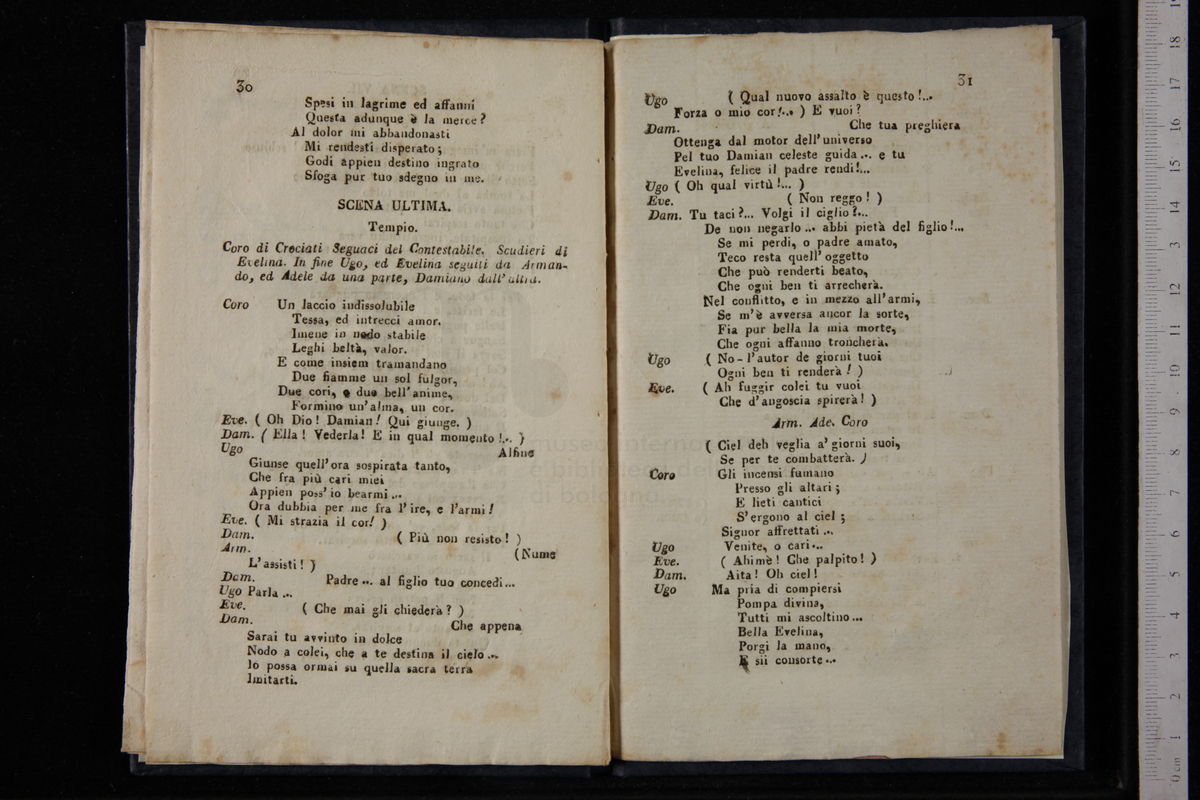 30
Spesi in lagrime ed affanni
Questa adunque è la merce?
Al dolor mi abbandonasti
Mi rendesti disperato;
Godi appien destino ingrato
Sfoga pur tuo sdegno in me.
SCENA ULTIMA.
Tempio.
Coro di Crociati Seguaci del Contestabile. Scudieri di
Evelina. In fine Ugo, ed Evelina seguiti da Arman-
do, ed Adele da una parte, Damiano dall'altra.
Coro Un laccio indissolubile
Tessa, ed intrecci amor.
Imene in nodo stabile
Leghi beltà, valor.
E come insiem tramandano
Due fiamme un sol fulgor,
Due cori, e due bell'anime,
Formino un'alma, un cor.
Eve. ( Oh Dio! Damian! Qui giunge. )
Dam. ( Ella! Vederla! E in qual momento!.. )
Ugo Alfine
Giunse quell'ora sospirata tanto,
Che fra più cari miei
Appien poss'io bearmi...
Ora dubbia per me fra l'ire, e l'armi!
Eve. ( Mi strazia il cor! )
Dam. ( Più non resisto! )
Arm. (Nume
L'assisti! )
Dam. Padre... al figlio tuo concedi...
Ugo Parla...
Eve. ( Che mai gli chiederà? )
Dam. Che appena
Sarai tu avvinto in dolce
Nodo a colei, che a te destina il cielo...
Io possa ormai su quella sacra terra
Imitarti.
31
Ugo ( Qual nuovo assalto è questo!...
Forza o mio cor!... ) E vuoi?
Dam. Che tua preghiera
Ottenga dal motor dell'universo
Pel tuo Damian celeste guida... e tu
Evelina, felice il padre rendi!...
Ugo ( Oh qual virtù!... )
Eve. ( Non reggo! )
Dam. Tu taci?... Volgi il ciglio?...
De non negarlo... abbi pietà del figlio!...
Se mi perdi, o padre amato,
Teco resta quell'oggetto
Che può renderti beato,
Che ogni ben ti arrecherà.
Nel conflitto, e in mezzo all'armi,
Se m'è avversa ancor la sorte,
Fia pur bella la mia morte,
Che ogni affanno troncherà.
Ugo ( No - l'autor de giorni tuoi
Ogni ben ti renderà! )
Eve. ( Ah fuggir colei tu vuoi
Che d'angoscia spirerà! )
Arm. Ade. Coro
( Ciel deh veglia a' giorni suoi,
Se per te combatterà. )
Coro Gli incensi fumano
Presso gli altari;
E lieti cantici
S'ergono al ciel;
Signor affrettati...
Ugo Venite, o cari...
Eve. ( Ahimè! Che palpito! )
Dam. Aita! Oh ciel!
Ugo Ma pria di compiersi
Pompa divina,
Tutti mi ascoltino...
Bella Evelina,
Porgi la mano,
E sii consorte...